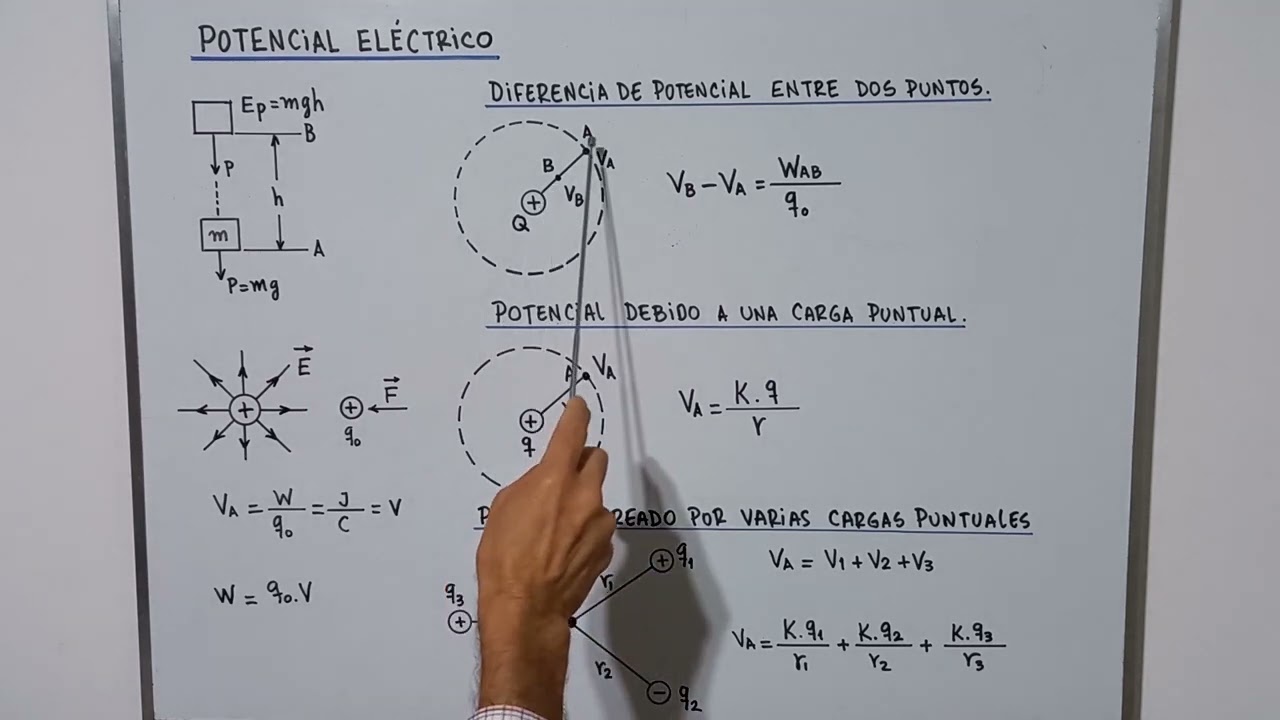 POTENCIAL ELÉCTRICO
Ep=mgh
B
P
h
m
A
P=mg
E
F
q₀
V_A = W/q₀ = J/C = V
W = q₀.V
DIFERENCIA DE POTENCIAL ENTRE DOS PUNTOS.
A
V_A
B
V_B
Q
V_B − V_A = W_AB/q₀
POTENCIAL DEBIDO A UNA CARGA PUNTUAL.
A
V_A
q
V_A = K.q/r
POR VARIAS CARGAS PUNTUALES
q₁
r₁
q₃
r₂
q₂
V_A = V₁ + V₂ + V₃
V_A = K.q₁/r₁ + K.q₂/r₂ + K.q₃/r₃